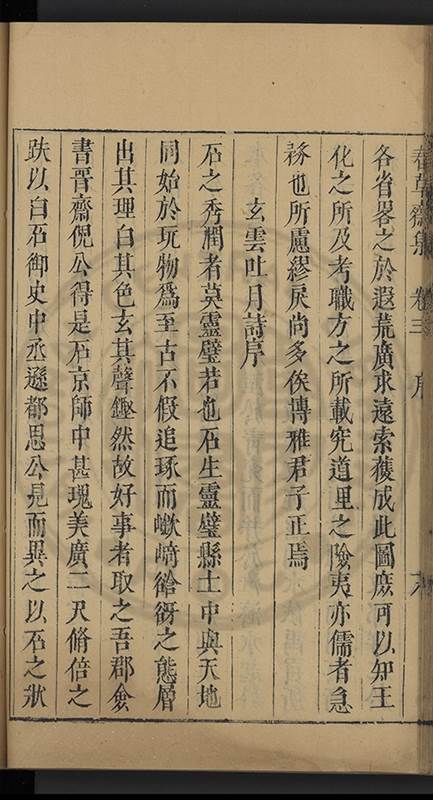 春草齋集 卷三 序
各省畧之於遐荒廣求遠索獲成此圖庶可以知王
化之所及考職方之所載究道里之險夷亦儒者急
務也所慮繆戾尚多俟博雅君子正焉
玄雲吐月詩序
石之秀潤者莫靈璧若也石生靈璧縣土中與天地
同始於玩物爲至古不假追琢而嶔崎谽谺之態層
出其理白其色玄其聲鏗然故好事者取之吾郡僉
書晋齋倪公得是石京師中甚瑰美廣二尺脩倍之
趺以白石御史中丞遜都思公見而異之以石之狀